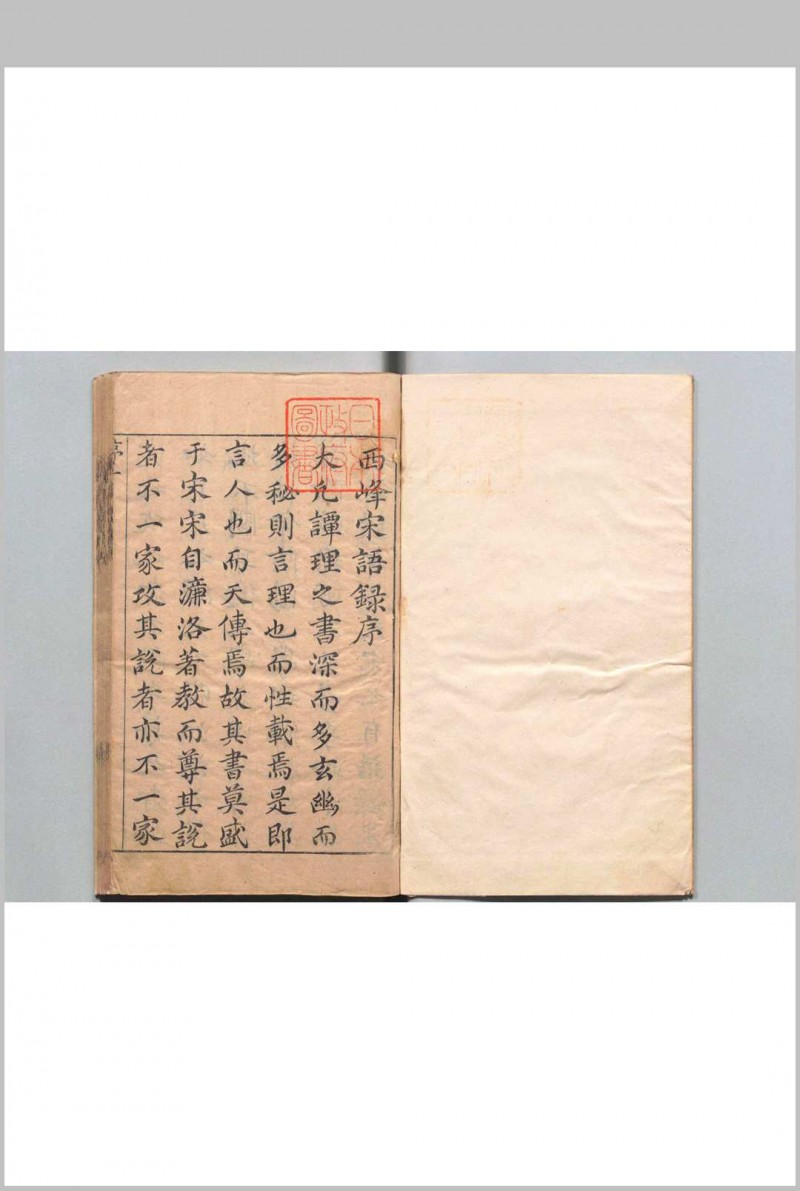 西峰宋語録序
大凢譚理之書深而多玄幽而
多秘則言理也而性載焉是即
言人也而天傳焉故其書莫盛
于宋宋自濂洛著教而尊其說
者不一家攻其說者亦不一家
序一
日本政府圖書